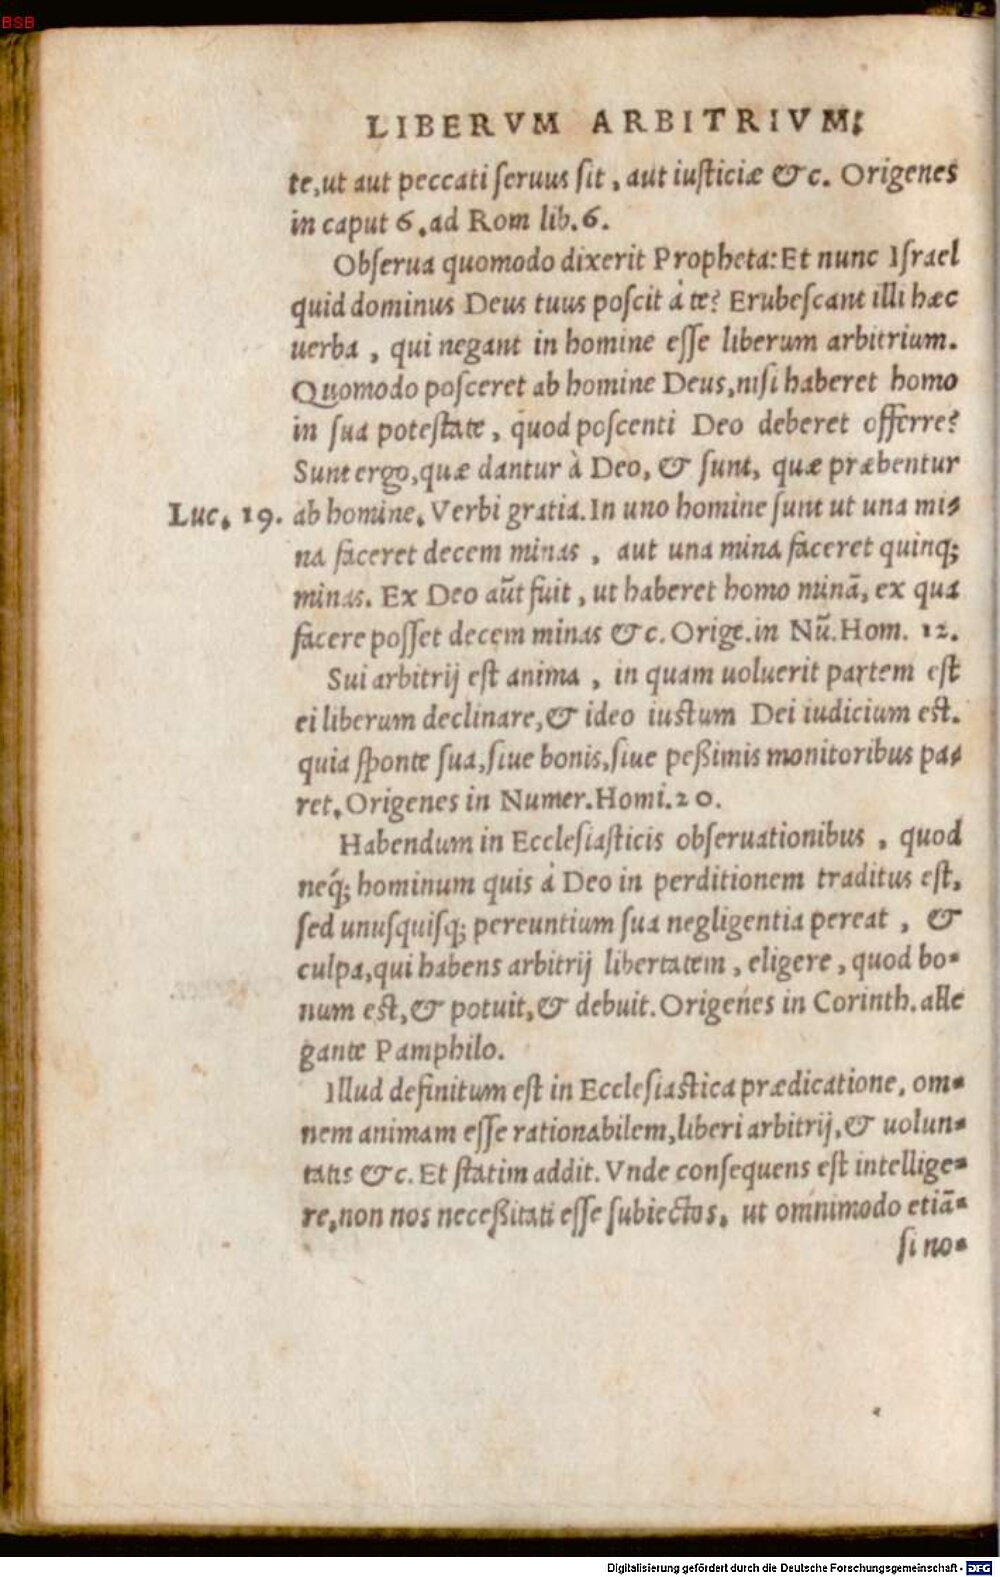 BSB
LIBERVM ARBITRIVM;
te, ut aut peccati seruus sit, aut iusticiæ &c. Origenes
in caput 6. ad Rom lib. 6.
Obserua quomodo dixerit Propheta: Et nunc Israel
quid dominus Deus tuus poscit à te? Erubescant illi hæc
uerba, qui negant in homine esse liberum arbitrium.
Quomodo posceret ab homine Deus, nisi haberet homo
in sua potestate, quod poscenti Deo deberet offerre?
Sunt ergo, quæ dantur à Deo, & sunt, quæ præbentur
Luc. 19. ab homine. Verbi gratia. In uno homine sunt ut una mi-
na faceret decem minas, aut una mina faceret quinq;
minas. Ex Deo aūt fuit, ut haberet homo minā, ex qua
facere posset decem minas &c. Orige. in Nū. Hom. 12.
Sui arbitrij est anima, in quam uoluerit partem est
ei liberum declinare, & ideo iustum Dei iudicium est.
quia sponte sua, siue bonis, siue peßimis monitoribus pa-
ret. Origenes in Numer. Homi. 20.
Habendum in Ecclesiasticis obseruationibus, quod
neq́; hominum quis à Deo in perditionem traditus est,
sed unusquisq; pereuntium sua negligentia pereat, &
culpa, qui habens arbitrij libertatem, eligere, quod bo-
num est, & potuit, & debuit. Origenes in Corinth. alle
gante Pamphilo.
Illud definitum est in Ecclesiastica prædicatione, om-
nem animam esse rationabilem, liberi arbitrij, & uolun-
tatis &c. Et statim addit. Vnde consequens est intellige-
re, non nos neceßitati esse subiectos, ut omnimodo etiā-
si no-
Digitalisierung gefördert durch die Deutsche Forschungsgemeinschaft - DFG